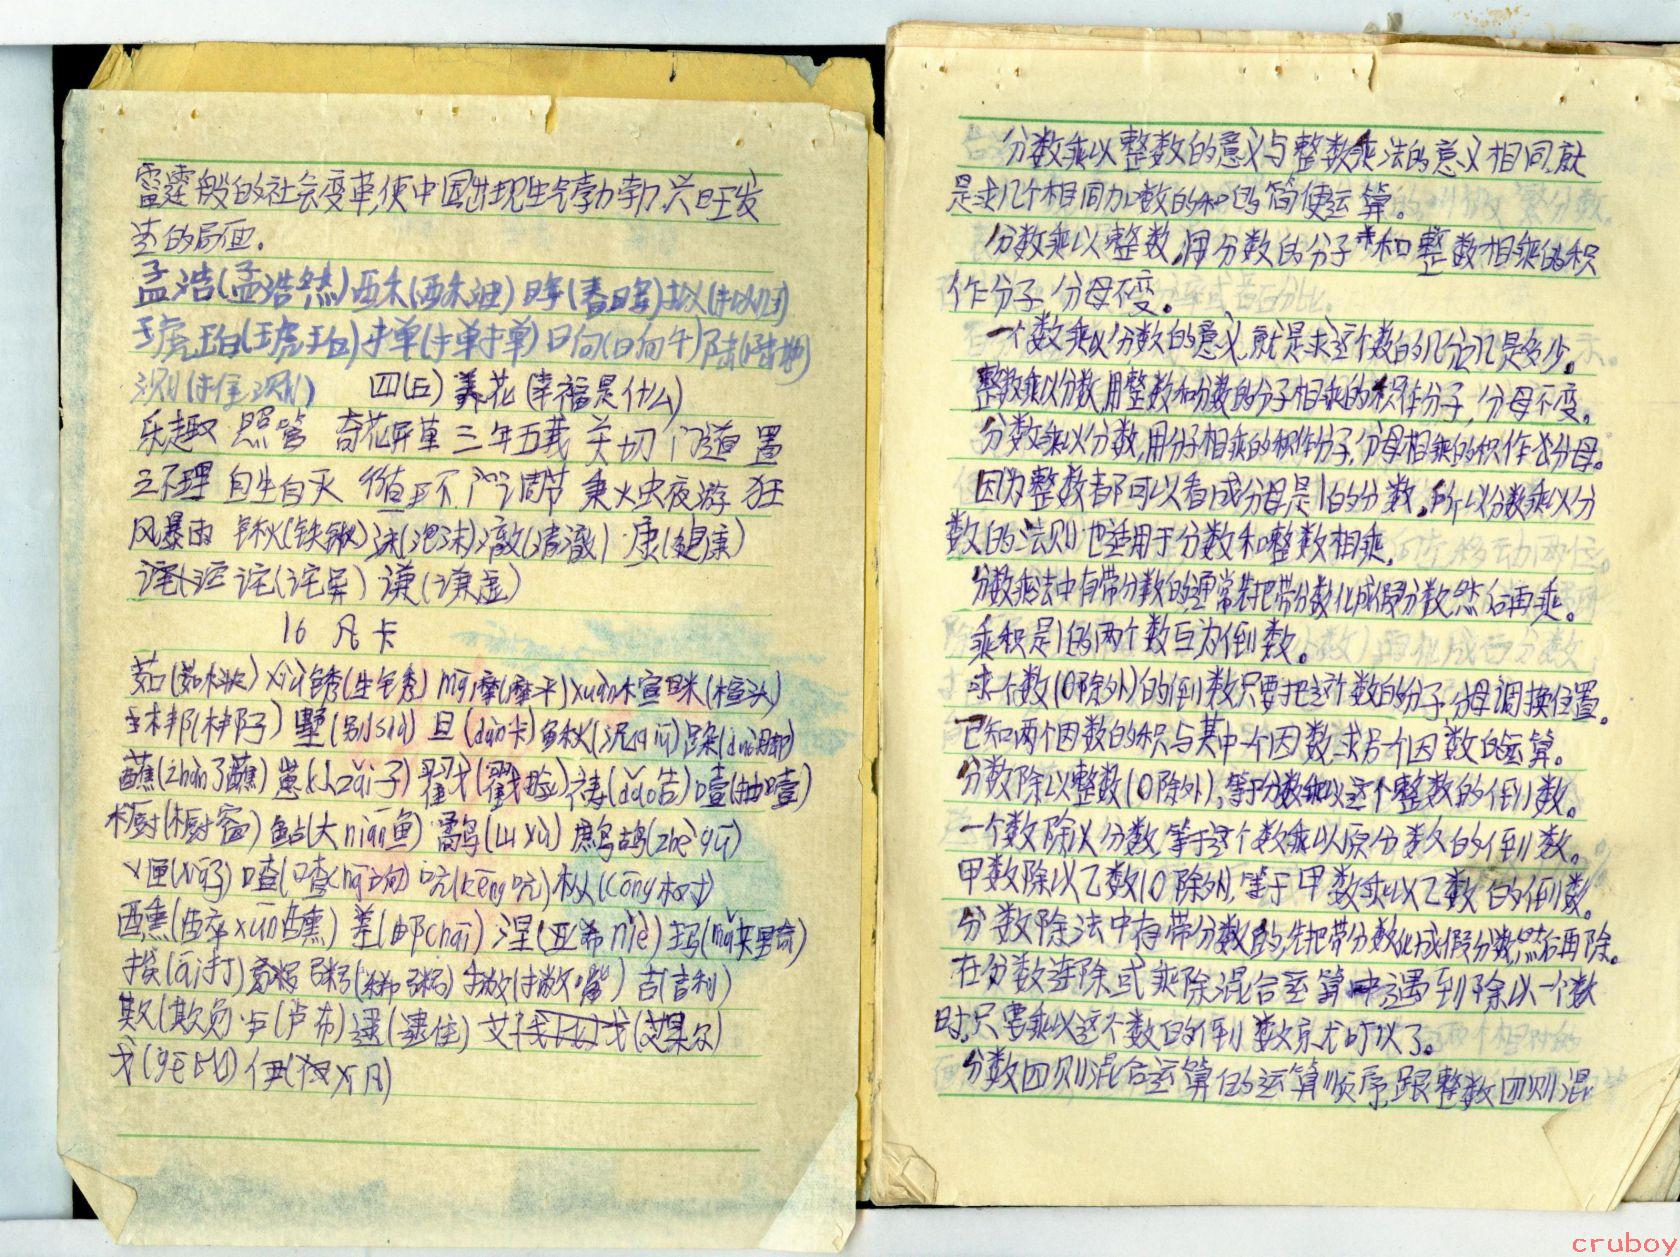 雷霆般的社会变革,使中国出现生气勃勃,兴旺发
达的局面.
孟浩(孟浩然)西禾(西禾油)日晖(春晖)拟(拟任)
琥珀(琥珀)掸(掸掸)日向(日向午)陆(陆地)
测(揣测) 四(五)养花(幸福是什么)
乐趣 照管 奇花异草 三年五载 关切 门道 置
之不理 自生自灭 循 不 调节 秉火虫夜游 狂
风暴雨 锹(铁锹)沫(泡沫)澈(清澈)康(健康)
诧(诧异)谦(谦虚)
16 凡卡
茹(茹 )xiù锈(生锈)mā摩(摩平)xuàn楦(楦头)
梆(梆子)墅(别shù)旦(dàn卡)鳅(泥qiū)跺(duò脚)
蘸(zhàn了蘸)崽(小zǎi子)戳(戳脸)祷(dǎo告)噎(抽噎)
橱(橱窗)鲇(大nián鱼)鹬(山yù)鹧鸪(zhè gū)
匣(xiá子)喳(喳chā 呦)吭(kēng吭)枞(cōng树)
醺(醉xūn醺)差(邮chāi)涅(亚希niè)玛(mǎ夹里奇)
挨(ái打) 粥(稀粥)撇(撇嘴)吉(吉利)
欺(欺负)卢(卢布)逮(逮住)艾 戈(艾果尔)
戈(gē )伊(伊凡)
分数乘以整数的意义与整数乘法的意义相同,就
是求几个相同加数的和的简便运算。
分数乘以整数,用分数的分子和整数相乘的积
作分子,分母不变。
一个数乘以分数的意义,就是求这个数的几分之几是多少。
整数乘以分数,用整数和分数的分子相乘的积作分子,分母不变。
分数乘以分数,用分子相乘的积作分子,分母相乘的积作分母。
因为整数都可以看成分母是1的分数,所以分数乘以分
数的法则也适用于分数和整数相乘,
分数乘法中有带分数的,通常先把带分数化成假分数,然后再乘。
乘积是1的两个数互为倒数。
求个数(0除外)的倒数只要把这个数的分子,分母调换位置。
已知两个因数的积与其中一个因数,求另一个因数的运算。
分数除以整数(0除外),等于分数乘以这个整数的倒数。
一个数除以分数,等于这个数乘以原分数的倒数。
甲数除以乙数(0除外),等于甲数乘以乙数的倒数。
分数除法中有带分数的,先把带分数化成假分数,然后再除。
在分数连除或乘除混合运算中遇到除以一个数
时,只要乘以这个数的倒数就可以了。
分数四则混合运算的运算顺序,跟整数四则混
cruboy